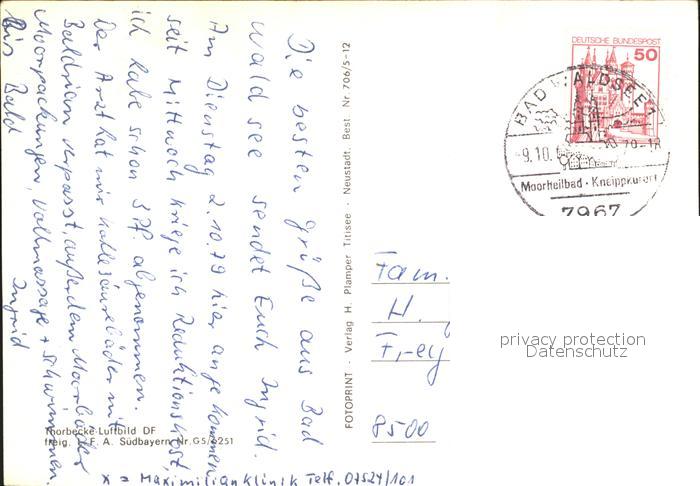 Die besten Grüße aus Bad
Waldsee sendet Euch Ingrid.
Am Dienstag 2.10.79 hier angekommen,
seit Mittwoch kriege ich Reduktionskost,
ich habe schon 3 Pf. abgenommen.
Der Arzt hat mir Kohlesäurebäder mit
Baldrian verpasst, außerdem Moorbäder
Moorpackungen, Vollmassage + Schwimmen.
Bis Bald Ingrid
Thorbecke-Luftbild DF
freig. F. A. Südbayern Nr. G5/
x = Maximilianklinik Telf. 07524/101
FOTOPRINT - Verlag H. Plamper Titisee - Neustadt. Best Nr. 706/5-12
DEUTSCHE BUNDESPOST
50
BAD WALDSEE 1
-9.10.
Moorheilbad - Kneippkurort
7967
Fam.
H.
Frey
8500
privacy protection
Datenschutz